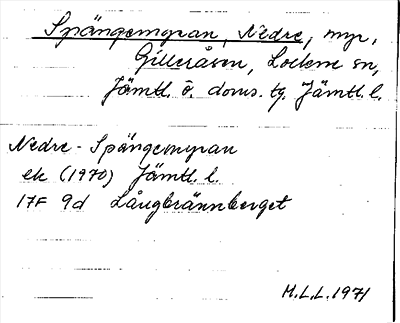 Spängemyran, Nedre, myr,
Gilleråsen, Lockne sn,
Jämtl. ö. doms. tg. Jämtl. l.
Nedre-Spängemyran
ek (1970) Jämtl. l.
17F 9d Långbrännberget
H.L.L. 1971